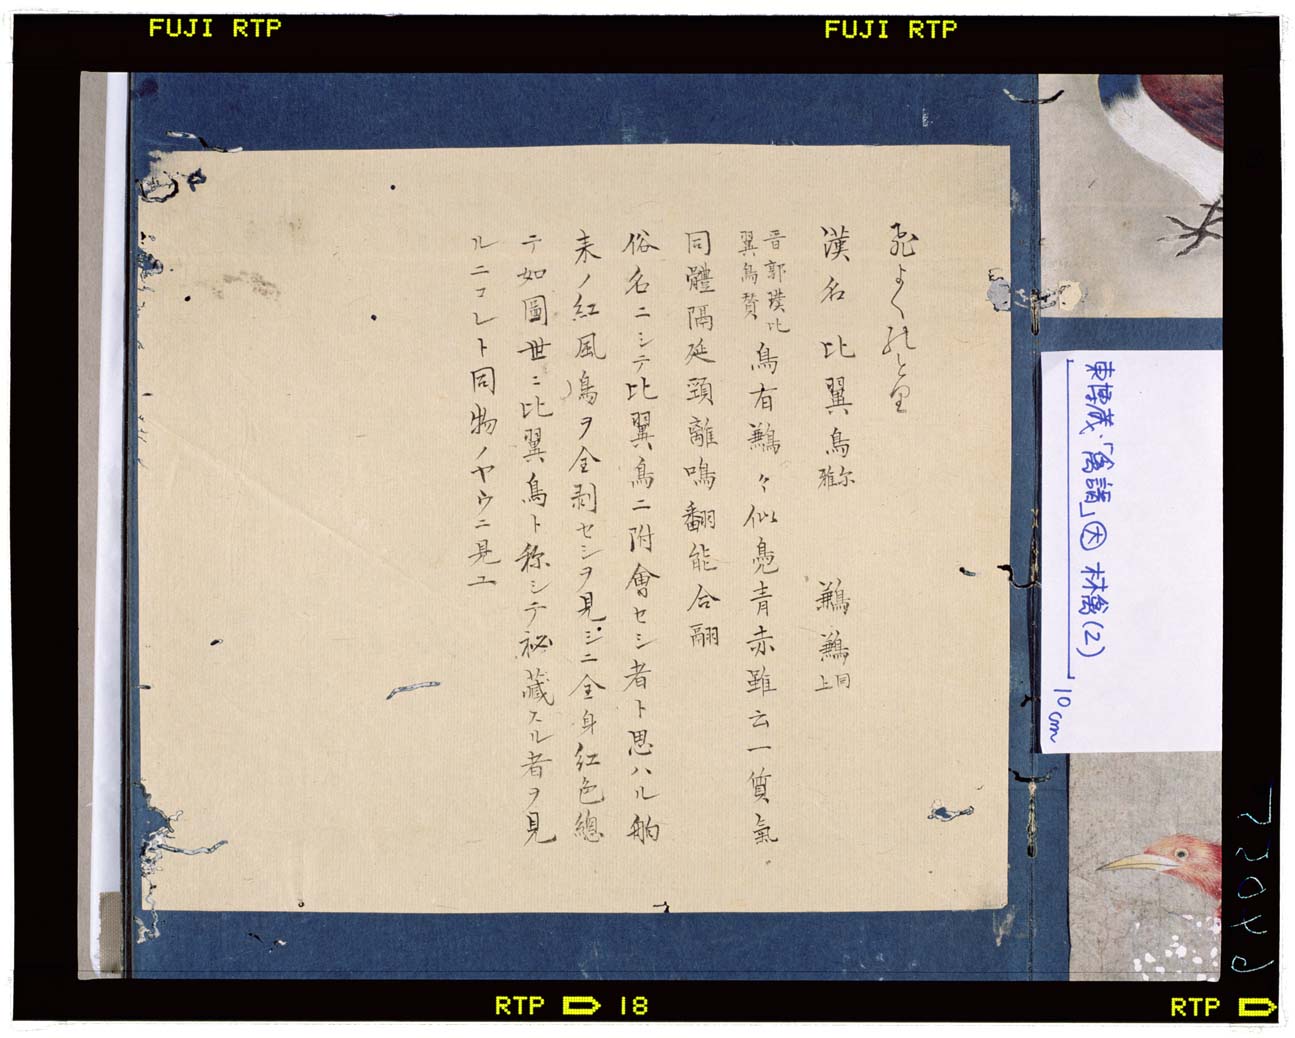 FUJI RTP
FUJI RTP
ひよくのとり
漢名 比翼鳥爾雅 鶼 鶼同上
晋郭璞比翼鳥賛 鳥有鶼々似鳧青赤雖云一質氣
同體隔延頸離鳴翻能合翮
俗名ニシテ比翼鳥ニ附會セシ者ト思ハル舶
来ノ紅風鳥ヲ全剥セシヲ見シニ全身紅色總
テ如圖世ニ比翼鳥ト称シテ祕藏スル者ヲ見
ルニコレト同物ノヤウニ見ユ
東博蔵「禽譜」㊅ 林禽(2)
10cm
RTP 18
RTP